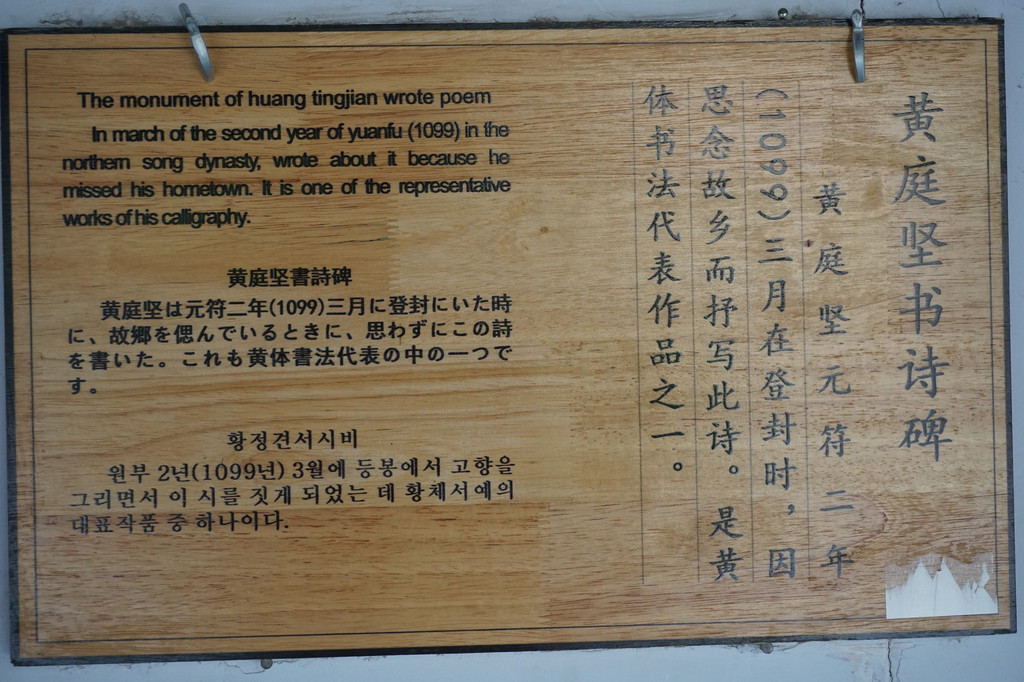 The monument of huang tingjian wrote poem
In march of the second year of yuanfu (1099) in the
northern song dynasty, wrote about it because he
missed his hometown. It is one of the representative
works of his calligraphy.
黄庭坚書詩碑
黄庭坚は元符二年(1099)三月に登封にいた時
に、故郷を偲んでいるときに、思わずにこの詩
を書いた。これも黄体書法代表の中の一つで
す。
황정견서시비
원부 2년(1099년) 3월에 등봉에서 고향을
그리면서 이 시를 짓게 되었는 데 황체서예의
대표작품 중 하나이다.
黄庭坚书诗碑
黄庭坚元符二年
(1099)三月在登封时，因
思念故乡而抒写此诗。是黄
体书法代表作品之一。